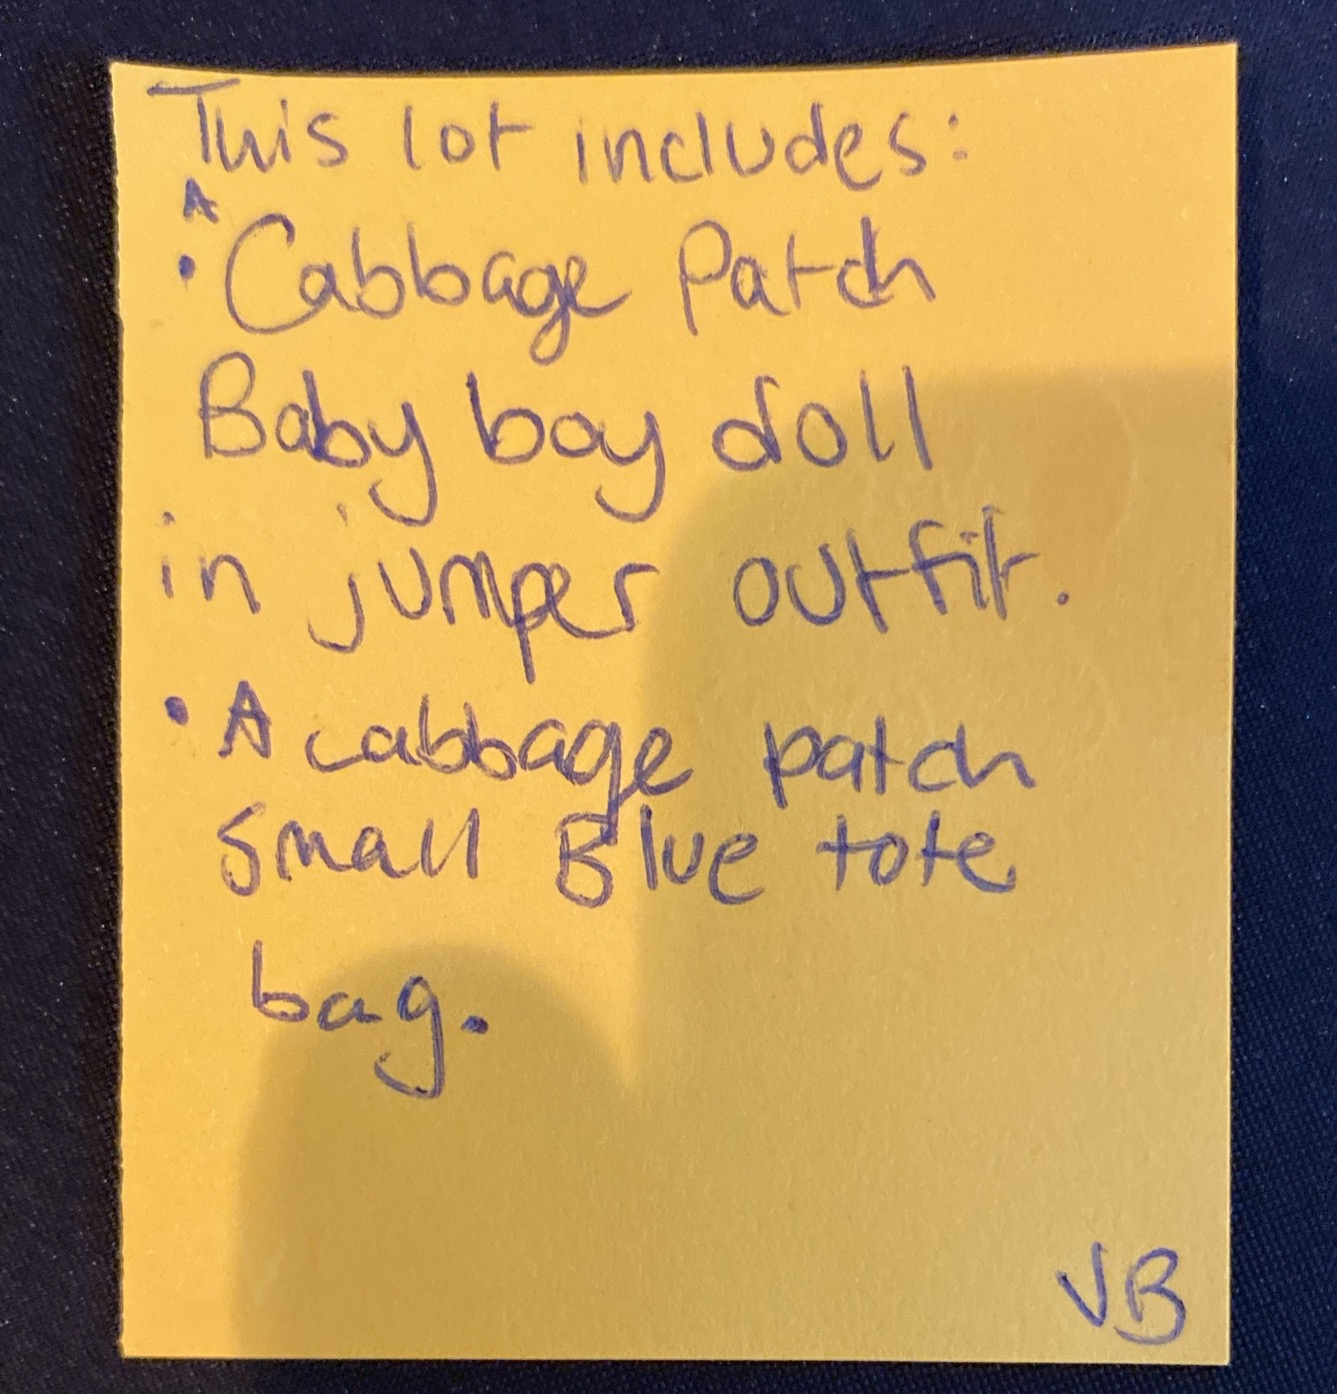 This lot includes:
A
• Cabbage Patch
Baby boy doll
in jumper outfit.
• A cabbage patch
small Blue tote
bag.
VB